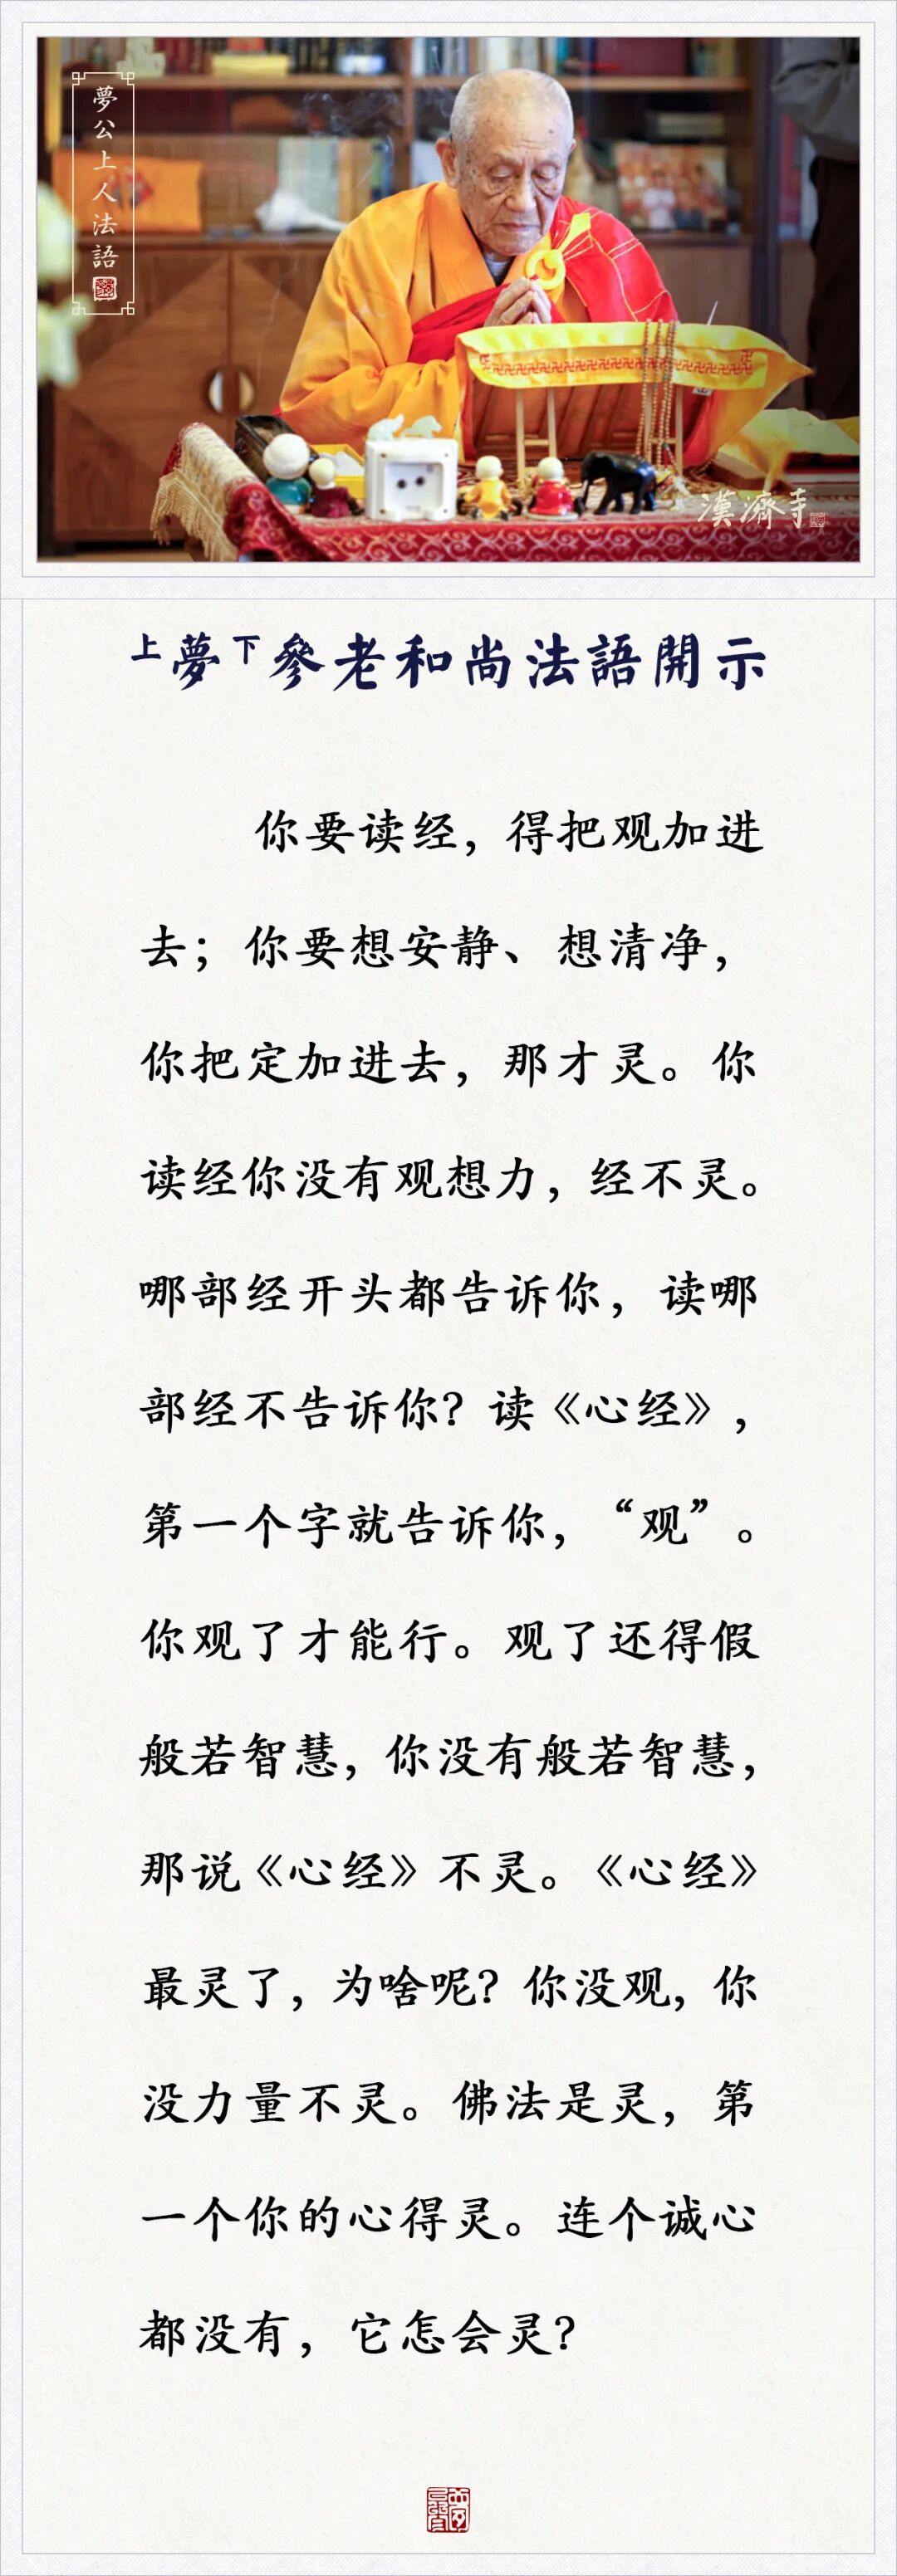 夢公上人法語
漢濟寺
上夢下參老和尚法語開示
你要读经，得把观加进
去；你要想安静、想清净，
你把定加进去，那才灵。你
读经你没有观想力，经不灵。
哪部经开头都告诉你，读哪
部经不告诉你？读《心经》，
第一个字就告诉你，“观”。
你观了才能行。观了还得假
般若智慧，你没有般若智慧，
那说《心经》不灵。《心经》
最灵了，为啥呢？你没观，你
没力量不灵。佛法是灵，第
一个你的心得灵。连个诚心
都没有，它怎会灵？